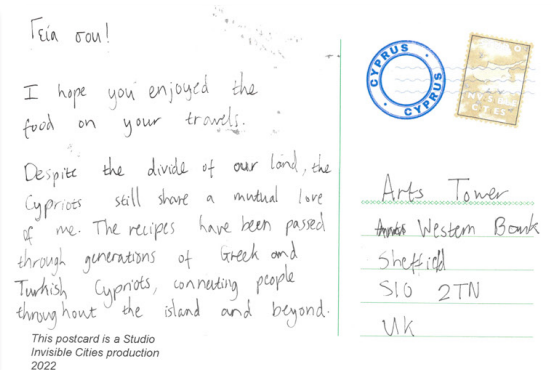 Γεία σου!
I hope you enjoyed the
food on your travels.
Despite the divide of our land, the
Cypriots still share a mutual love
of me. The recipes have been passed
through generations of Greek and
Turkish Cypriots, connecting people
throughout the island and beyond.
This postcard is a Studio
Invisible Cities production
2022
CYPRUS
CYPRUS
Arts Tower
Western Bank
Sheffield
S10 2TN
UK